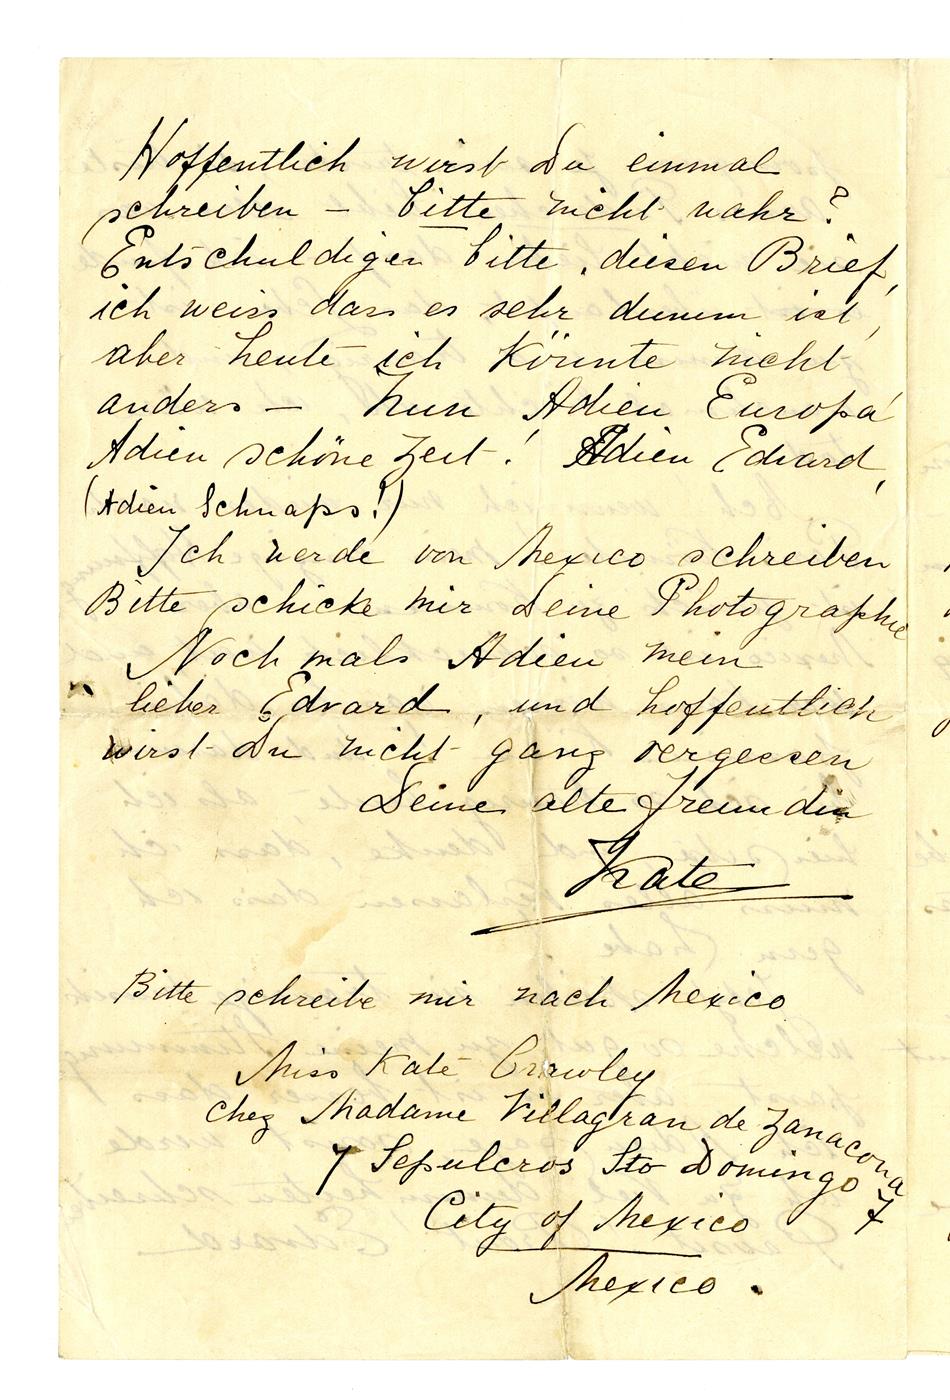 Hoffentlich wirst Du einmal
schreiben – bitte nicht wahr?
Entschuldigen bitte, diesen Brief,
ich weiss dass es sehr dumm ist,
aber heute ich könnte nicht
anders – Nun Adieu Europa!
Adieu schöne Zeit! Adieu Edvard,
(Adieu Schnaps!)
Ich werde von Mexico schreiben
Bitte schicke mir Deine Photographie
Noch mals Adieu mein
lieber Edvard, und hoffentlich
wirst Du nicht ganz vergessen
Deine alte Freundin
Kate
Bitte schreibe mir nach Mexico
Miss Kate Crawley
chez Madame Villagran de Zanacona
7 Sepulcros Sto Domingo 7
City of Mexico
Mexico.